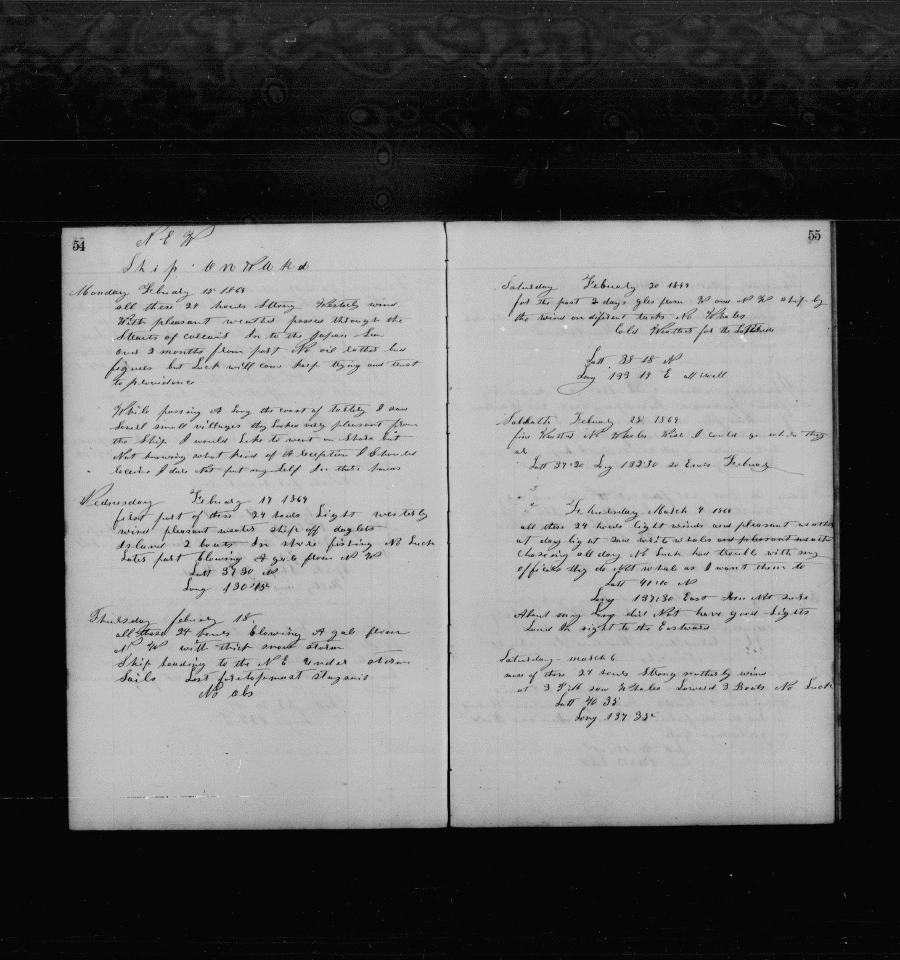 54
N E W
Ship Onward
Monday Febuary 15 1869
all these 24 hours Strong Westerly wind
With pleasant weather passes through the
Straits of in to the Japan Sea
and 2 months from port No oil rather bad
figuers but Luck will come keep trying and trust
to providence
While passing A Long the coast of I saw
small villages they Looked very pleasant from
the Ship I would Like to went on Shore but
Not knowing what kind of A reception I Should
receive I did Not put my Self In their
Wednesday Febuary 17 1869
first part of these 24 hours Light westerly
wind pleasant weather Ship off daglets
Island 2 boats In shore fishing No Luck
Later part blowing A gale from N W
Latt 37 30 N
Long 130 15
Thursday febuary 18
all these 24 hours blowing A gale from
N W with thick snow storm
Ship heading to the N E under storm
Sails Lost foretopmast staysail
No obs
55
Saturday Febuary 20 1869
for the past 2 days gles from W and N W Ship by
the wind on diferent tacks No Whales
Cold Weather for the Latitude
Latt 38 18 N
Long 133 19 E all well
Sabbath Febuary 28 1869
fine Weather No Whales Wish I could go where they
ar
Latt 37 20 Long 132 30 so Ends Febuary
" " Thursday March 4 1869
all these 24 hours light winds and pleasant weather
at day light saw white whales and pleasant weath
Chaseing all day No Luck had trouble with my
officers they do Not whale as I want them to
Latt 41 10 N
Long 137 30 East Am Not sure
About my Long did Not have good Sights
Land In sight to the Eastward
Saturday march 6
most of these 24 hours Strong wind
at 3 P M saw Whales Lowerd 3 Boats No Luck
Latt 40 35
Long 137 35